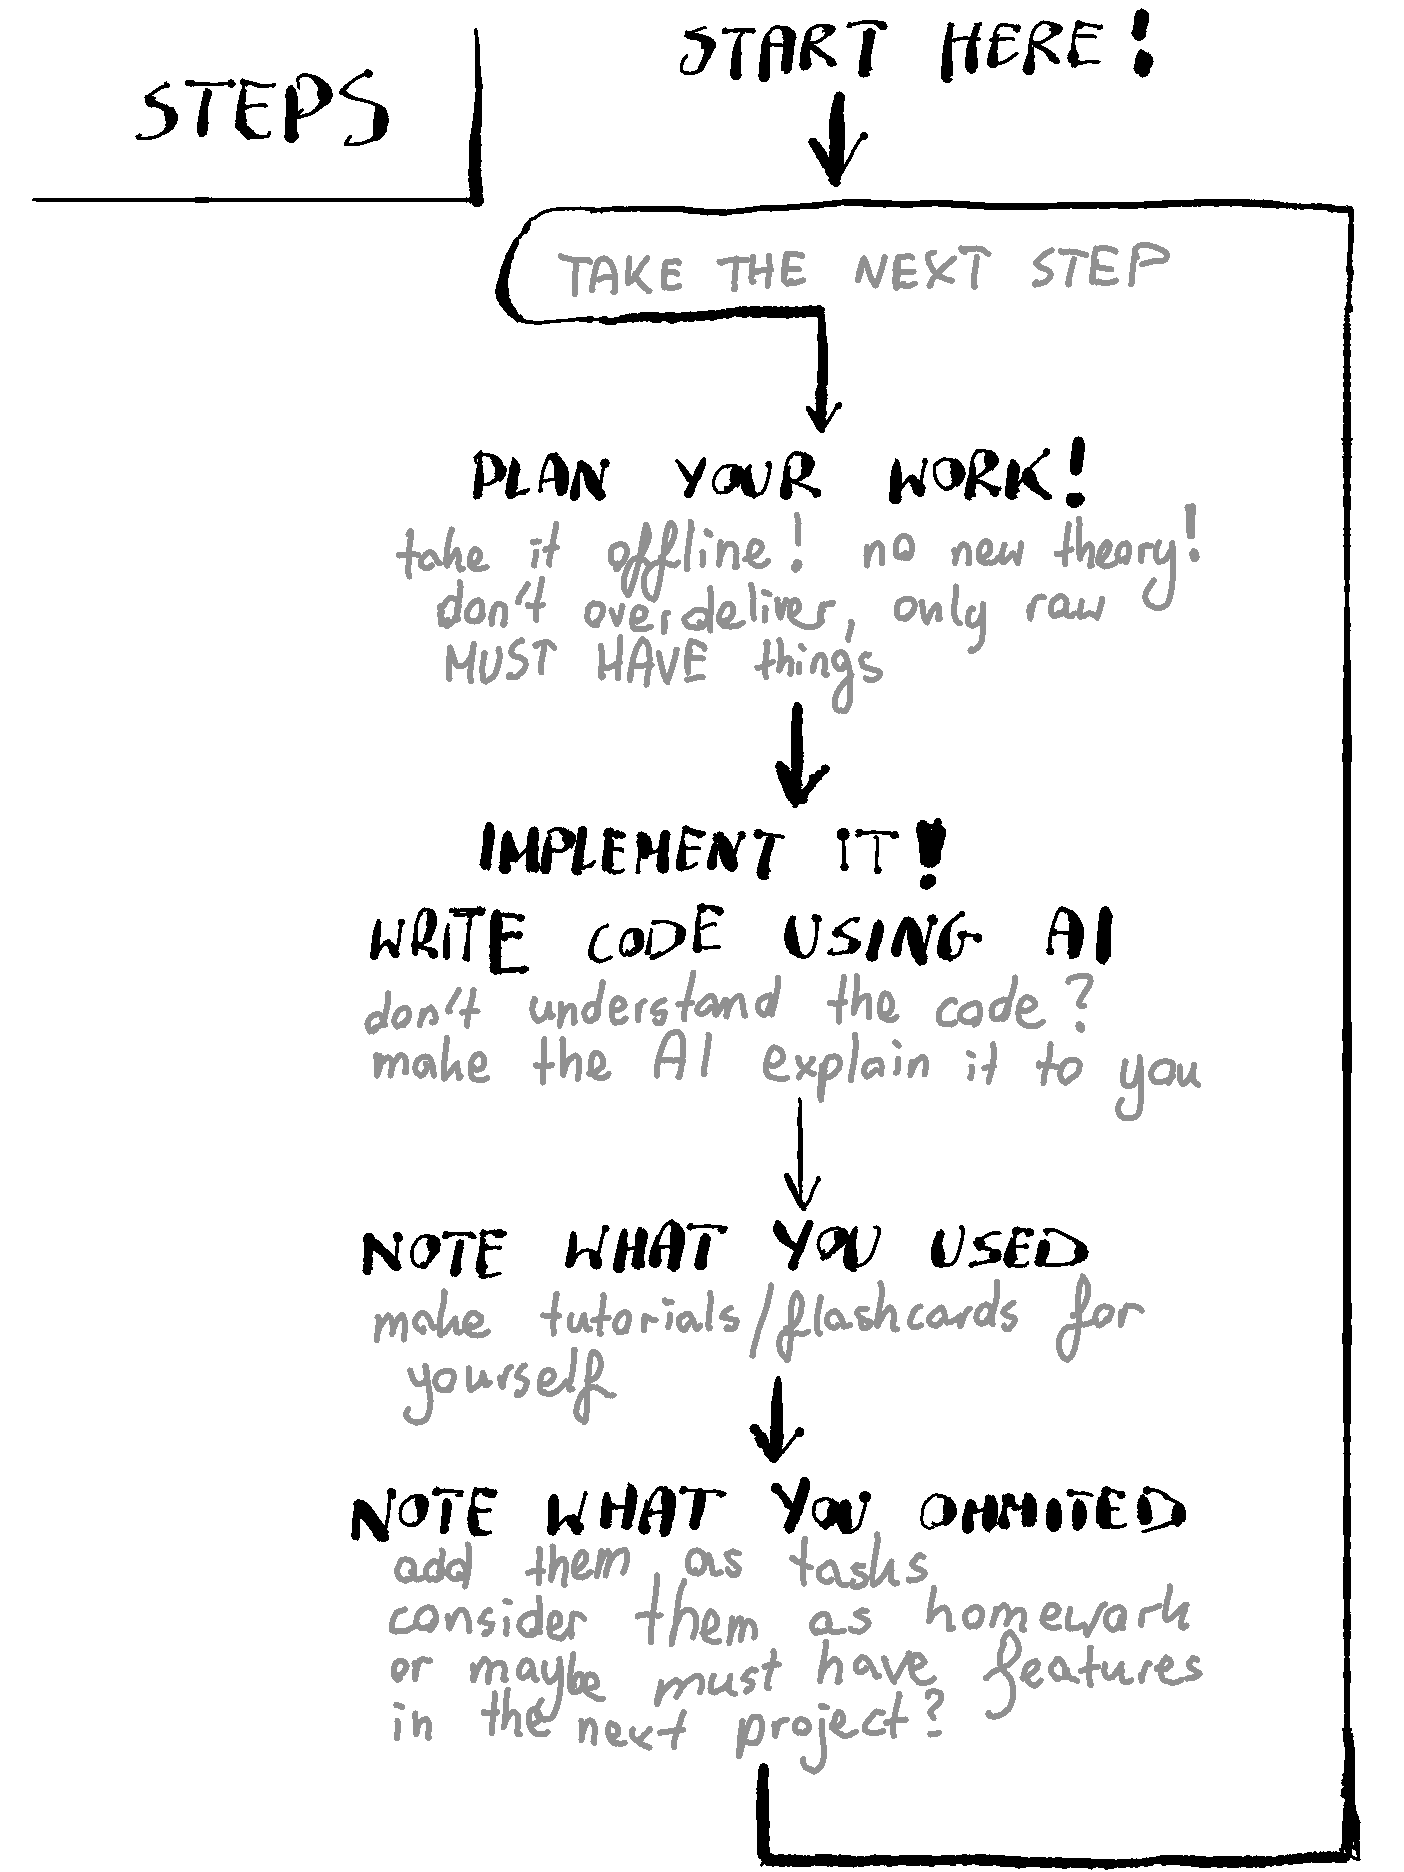 STEPS
START HERE!
TAKE THE NEXT STEP
PLAN YOUR WORK!
take it offline! no new theory!
don't overdeliver, only raw
MUST HAVE things
IMPLEMENT IT!
WRITE CODE USING AI
don't understand the code?
make the AI explain it to you
NOTE WHAT YOU USED
make tutorials/flashcards for
yourself
NOTE WHAT YOU OMMITED
add them as tasks
consider them as homework
or maybe must have features
in the next project?